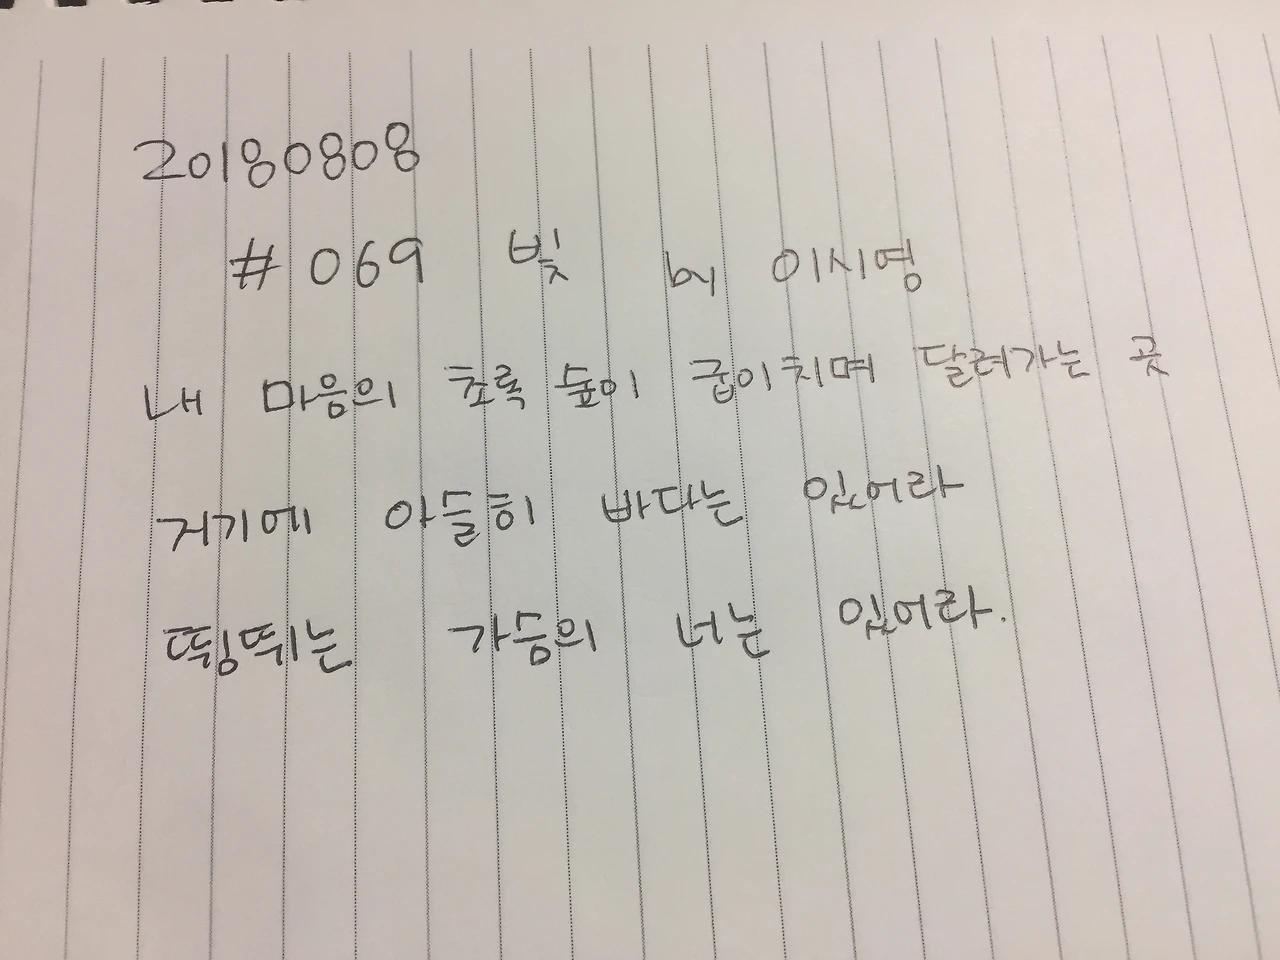 20180808
#069 빛 by 이시영
내 마음의 초록 숲이 굽이치며 달려가는 곳
거기에 아슬히 바다는 있어라
뜀뛰는 가슴의 너는 있어라.